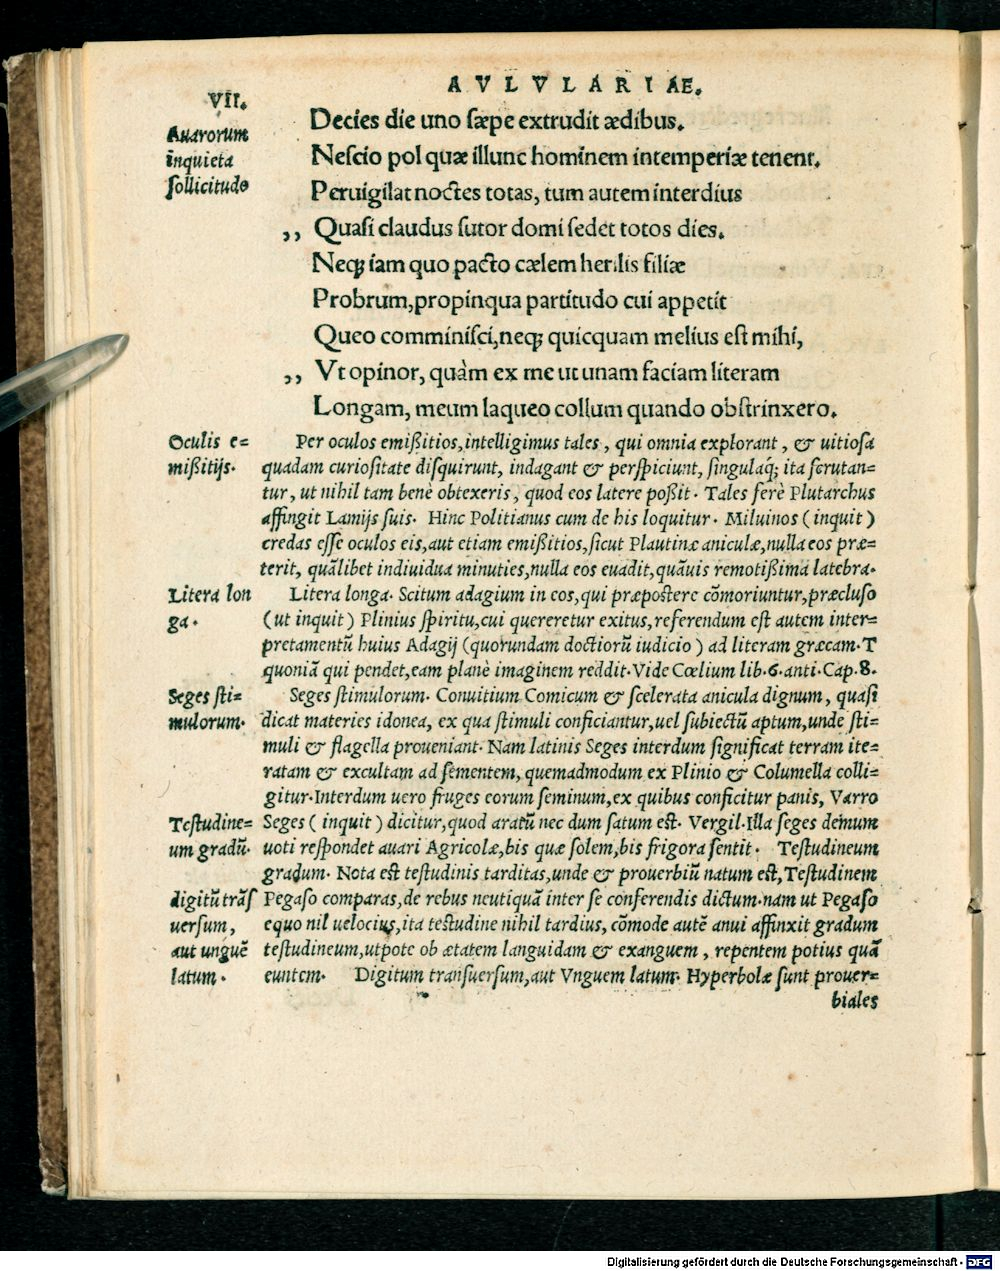 AVLVLARIAE.
VII.
Auarorum
inquieta
sollicitudo
Decies die uno sæpe extrudit ædibus.
Nescio pol quæ illunc hominem intemperiæ tenent.
Peruigilat noctes totas, tum autem interdius
,, Quasi claudus sutor domi sedet totos dies.
Neq; iam quo pacto cælem herilis filiæ
Probrum, propinqua partitudo cui appetit
Queo comminisci, neq; quicquam melius est mihi,
,, Vt opinor, quàm ex me ut unam faciam literam
Longam, meum laqueo collum quando obstrinxero.
Oculis e=
mißitijs.
Per oculos emißitios, intelligimus tales, qui omnia explorant, & uitiosa
quadam curiositate disquirunt, indagant & perspiciunt, singulaq́; ita scrutan=
tur, ut nihil tam benè obtexeris, quod eos latere poßit. Tales ferè Plutarchus
affingit Lamijs suis. Hinc Politianus cum de his loquitur. Miluinos (inquit)
credas esse oculos eis, aut etiam emißitios, sicut Plautinæ aniculæ, nulla eos præ=
terit, quãlibet indiuidua minuties, nulla eos euadit, quãuis remotißima latebra.
Litera lon
ga.
Litera longa. Scitum adagium in eos, qui præpostere cõmoriuntur, præcluso
(ut inquit) Plinius spiritu, cui quereretur exitus, referendum est autem inter=
pretamentũ huius Adagij (quorundam doctiorũ iudicio) ad literam græcam. T
quoniã qui pendet, eam planè imaginem reddit. Vide Cœlium lib. 6. anti. Cap. 8.
Seges sti=
mulorum.
Seges stimulorum. Conuitium Comicum & scelerata anicula dignum, quasi
dicat materies idonea, ex qua stimuli conficiantur, uel subiectũ aptum, unde sti=
muli & flagella proueniant. Nam latinis Seges interdum significat terram ite=
ratam & excultam ad sementem, quemadmodum ex Plinio & Columella colli=
gitur. Interdum uero fruges eorum seminum, ex quibus conficitur panis, Varro
Testudine=
um gradũ.
Seges (inquit) dicitur, quod aratũ nec dum satum est. Vergil. Illa seges demum
uoti respondet auari Agricolæ, bis quæ solem, bis frigora sentit. Testudineum
gradum. Nota est testudinis tarditas, unde & prouerbiũ natum est, Testudinem
digitũ trãs
uersum,
aut unguẽ
latum.
Pegaso comparas, de rebus neutiquã inter se conferendis dictum. nam ut Pegaso
equo nil uelocius, ita testudine nihil tardius, cõmode autẽ anui affinxit gradum
testudineum, utpote ob ætatem languidam & exanguem, repentem potius quã
euntem. Digitum transuersum, aut Vnguem latum. Hyperbolæ sunt prouer=
biales
Digitalisierung gefördert durch die Deutsche Forschungsgemeinschaft - DFG